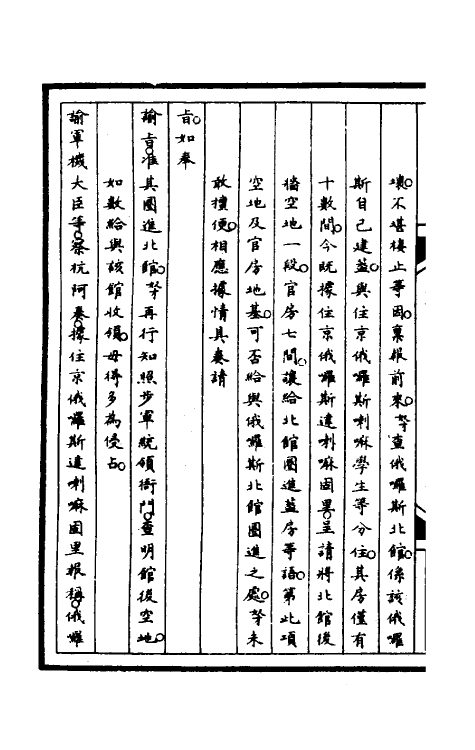 壞不堪棲止等因稟報前來等查俄囉斯北館係該俄囉
斯自已建蓋與住京俄囉斯喇嘛學生等分住其房僅有
十數間今既據住京俄囉斯達喇嘛固里呈請將北館後
牆空地一段官房七間讓給北館圈進蓋房等語第此項
空地及官房地基可否給與俄囉斯北館圈進之處等未
敢擅便相應據情具奏請
旨如奉
諭旨准其圈進北館等再行知照步軍統領衙門查明館後空地
如數給與該館收領毋得多為侵占
諭軍機大臣等察杭阿奏據住京俄囉斯達喇嘛固里報稱俄囉